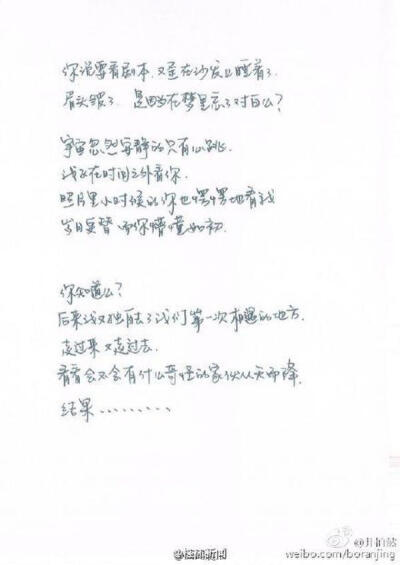 你说要看剧本,又歪在沙发上睡着了
眉头皱了 是因为在梦里忘了对白么?
宇宙忽然安静的只有心跳.
我在时间之外看你.
照片里小时候的你也懵懵地看我
岁月更替 而你懵懂如初.
你知道么?
后来我又独自去了我们第一次相遇的地方.
走过来又走过去.
看看会不会有什么奇怪的家伙从天而降.
结果.........
@娃丽新闻
@井柏然
weibo.com/boranjing